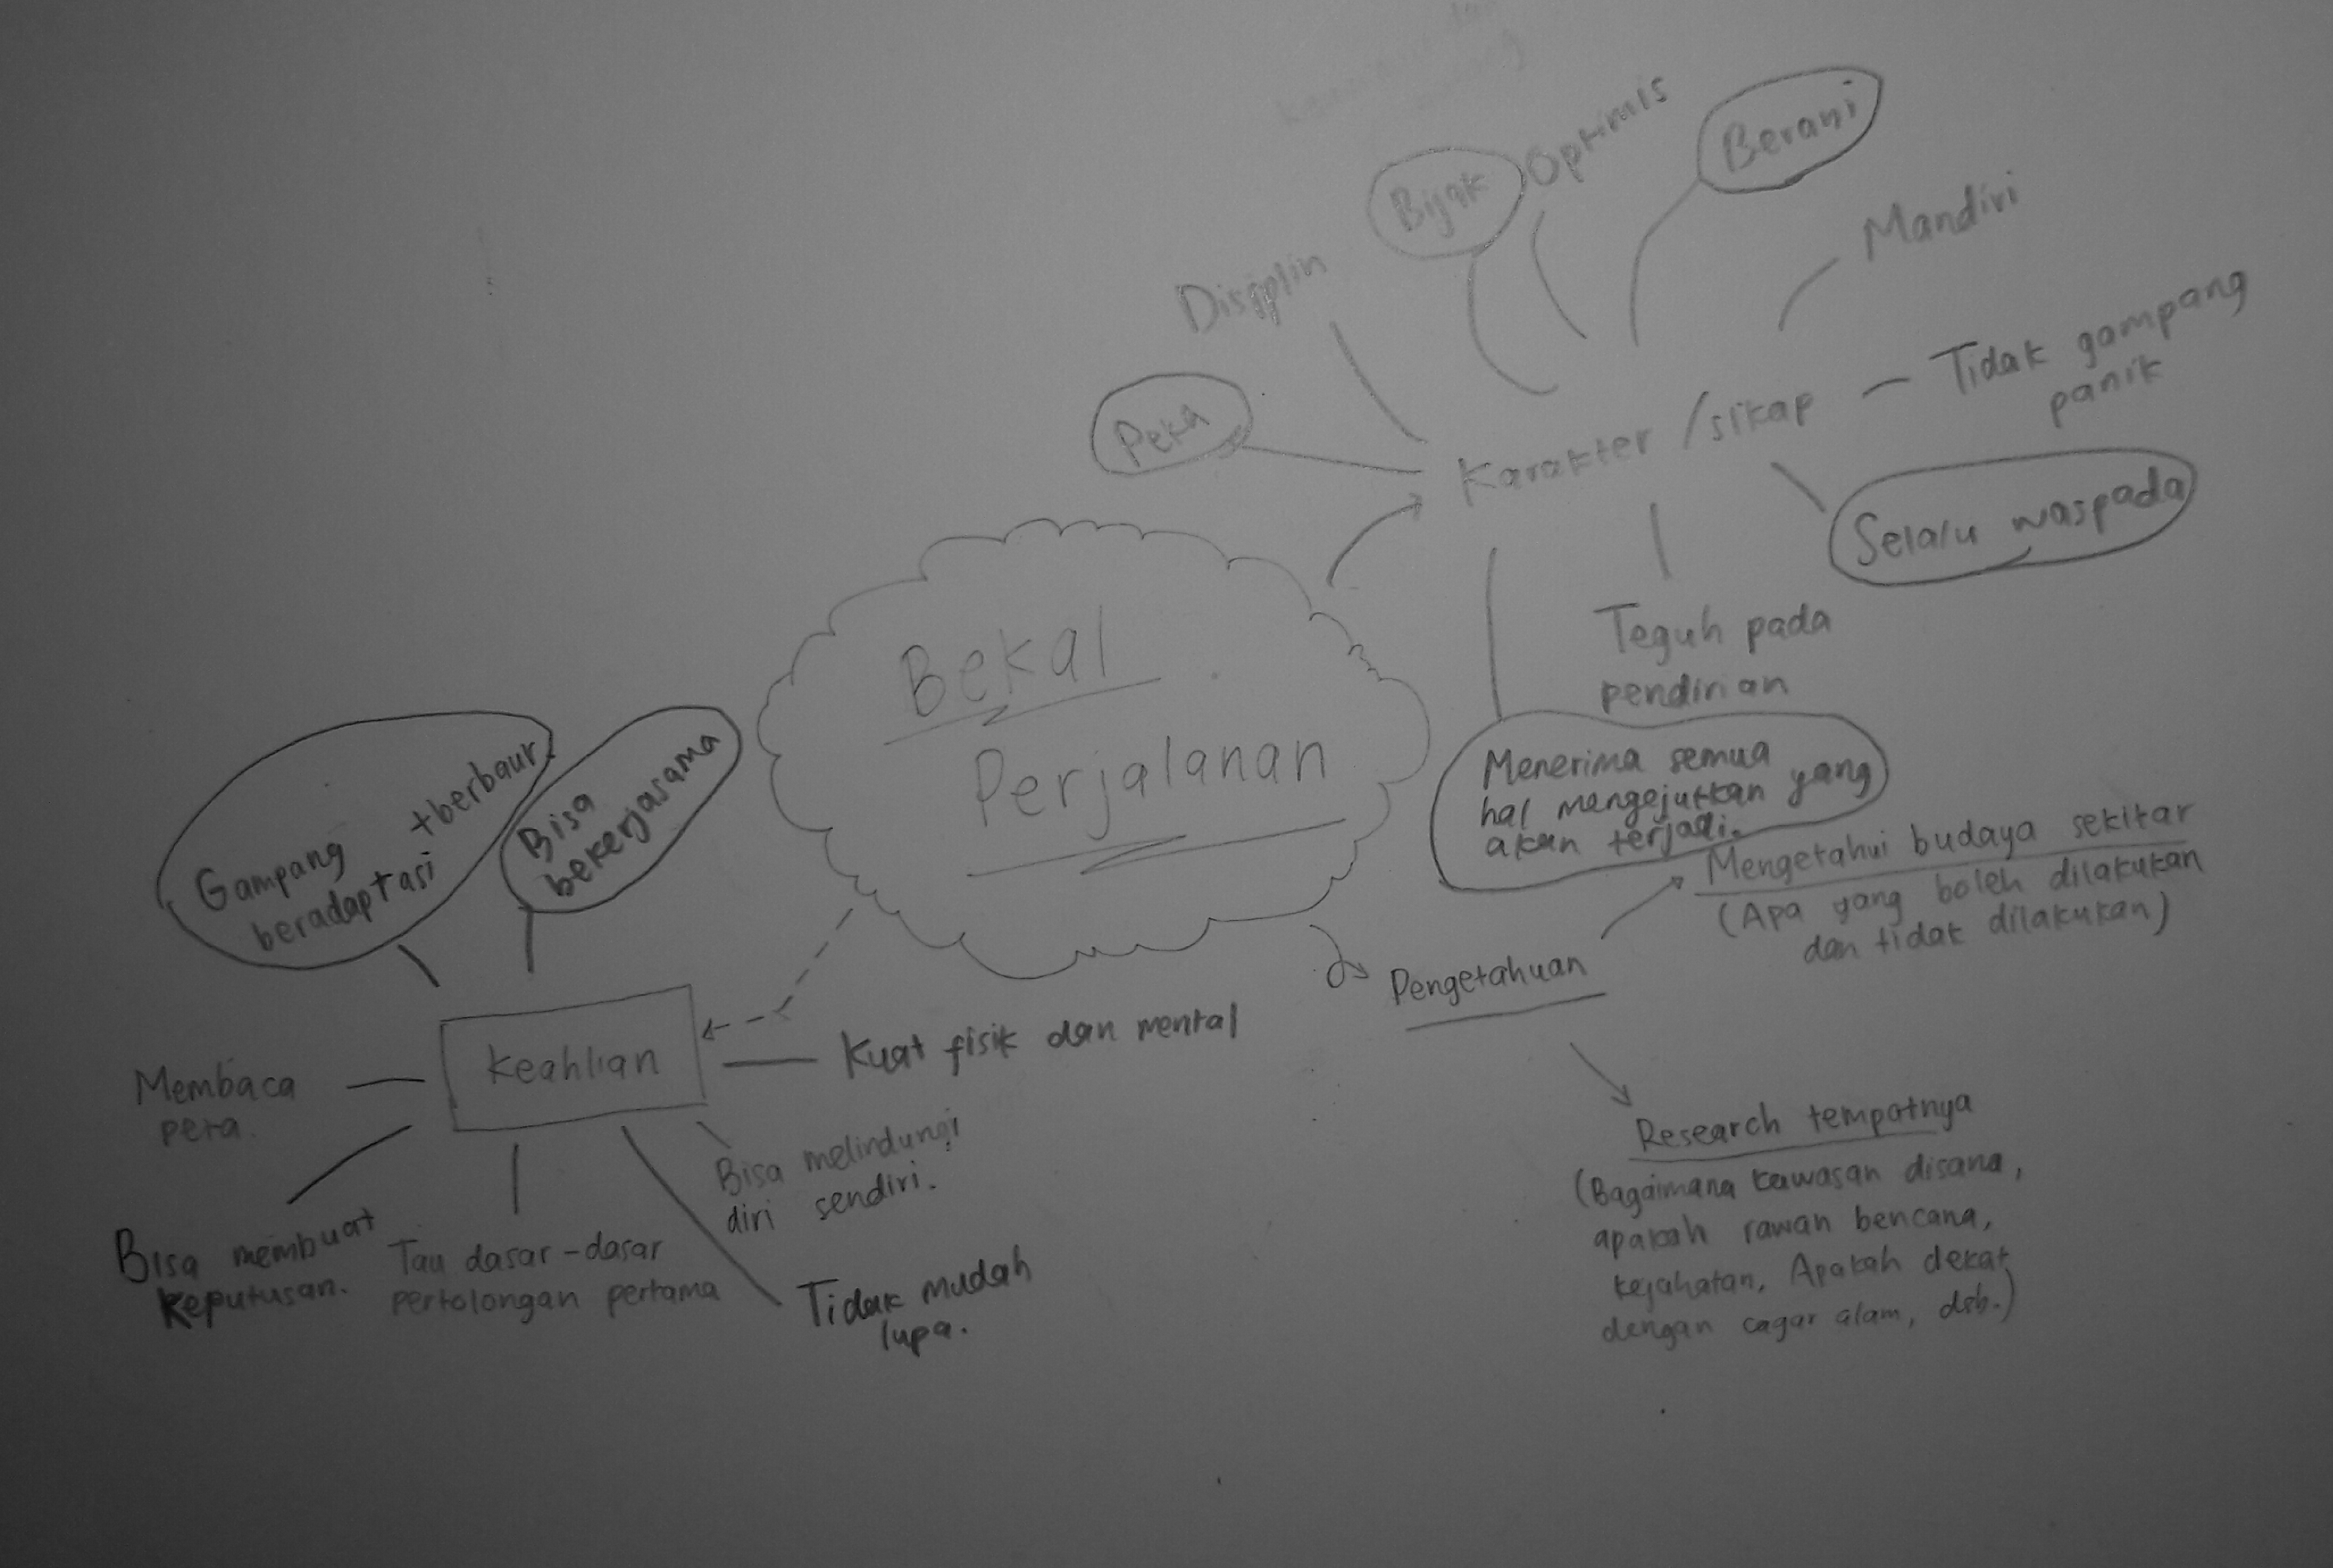 Bekal
Perjalanan
Karakter / sikap
Peka
Disiplin
Bijak
Optimis
Berani
Mandiri
Tidak gampang
panik
Selalu waspada
Teguh pada
pendirian
Menerima semua
hal mengejutkan yang
akan terjadi.
Pengetahuan
Mengetahui budaya sekitar
(Apa yang boleh dilakukan
dan tidak dilakukan)
Research tempatnya
(Bagaimana kawasan disana,
apakah rawan bencana,
kejahatan, Apakah dekat
dengan cagar alam, dsb.)
Keahlian
Gampang +berbaur
beradaptasi
Bisa
bekerjasama
Kuat fisik dan mental
Membaca
peta.
Bisa membuat
keputusan.
Tau dasar-dasar
pertolongan pertama
Bisa melindungi
diri sendiri.
Tidak mudah
lupa.